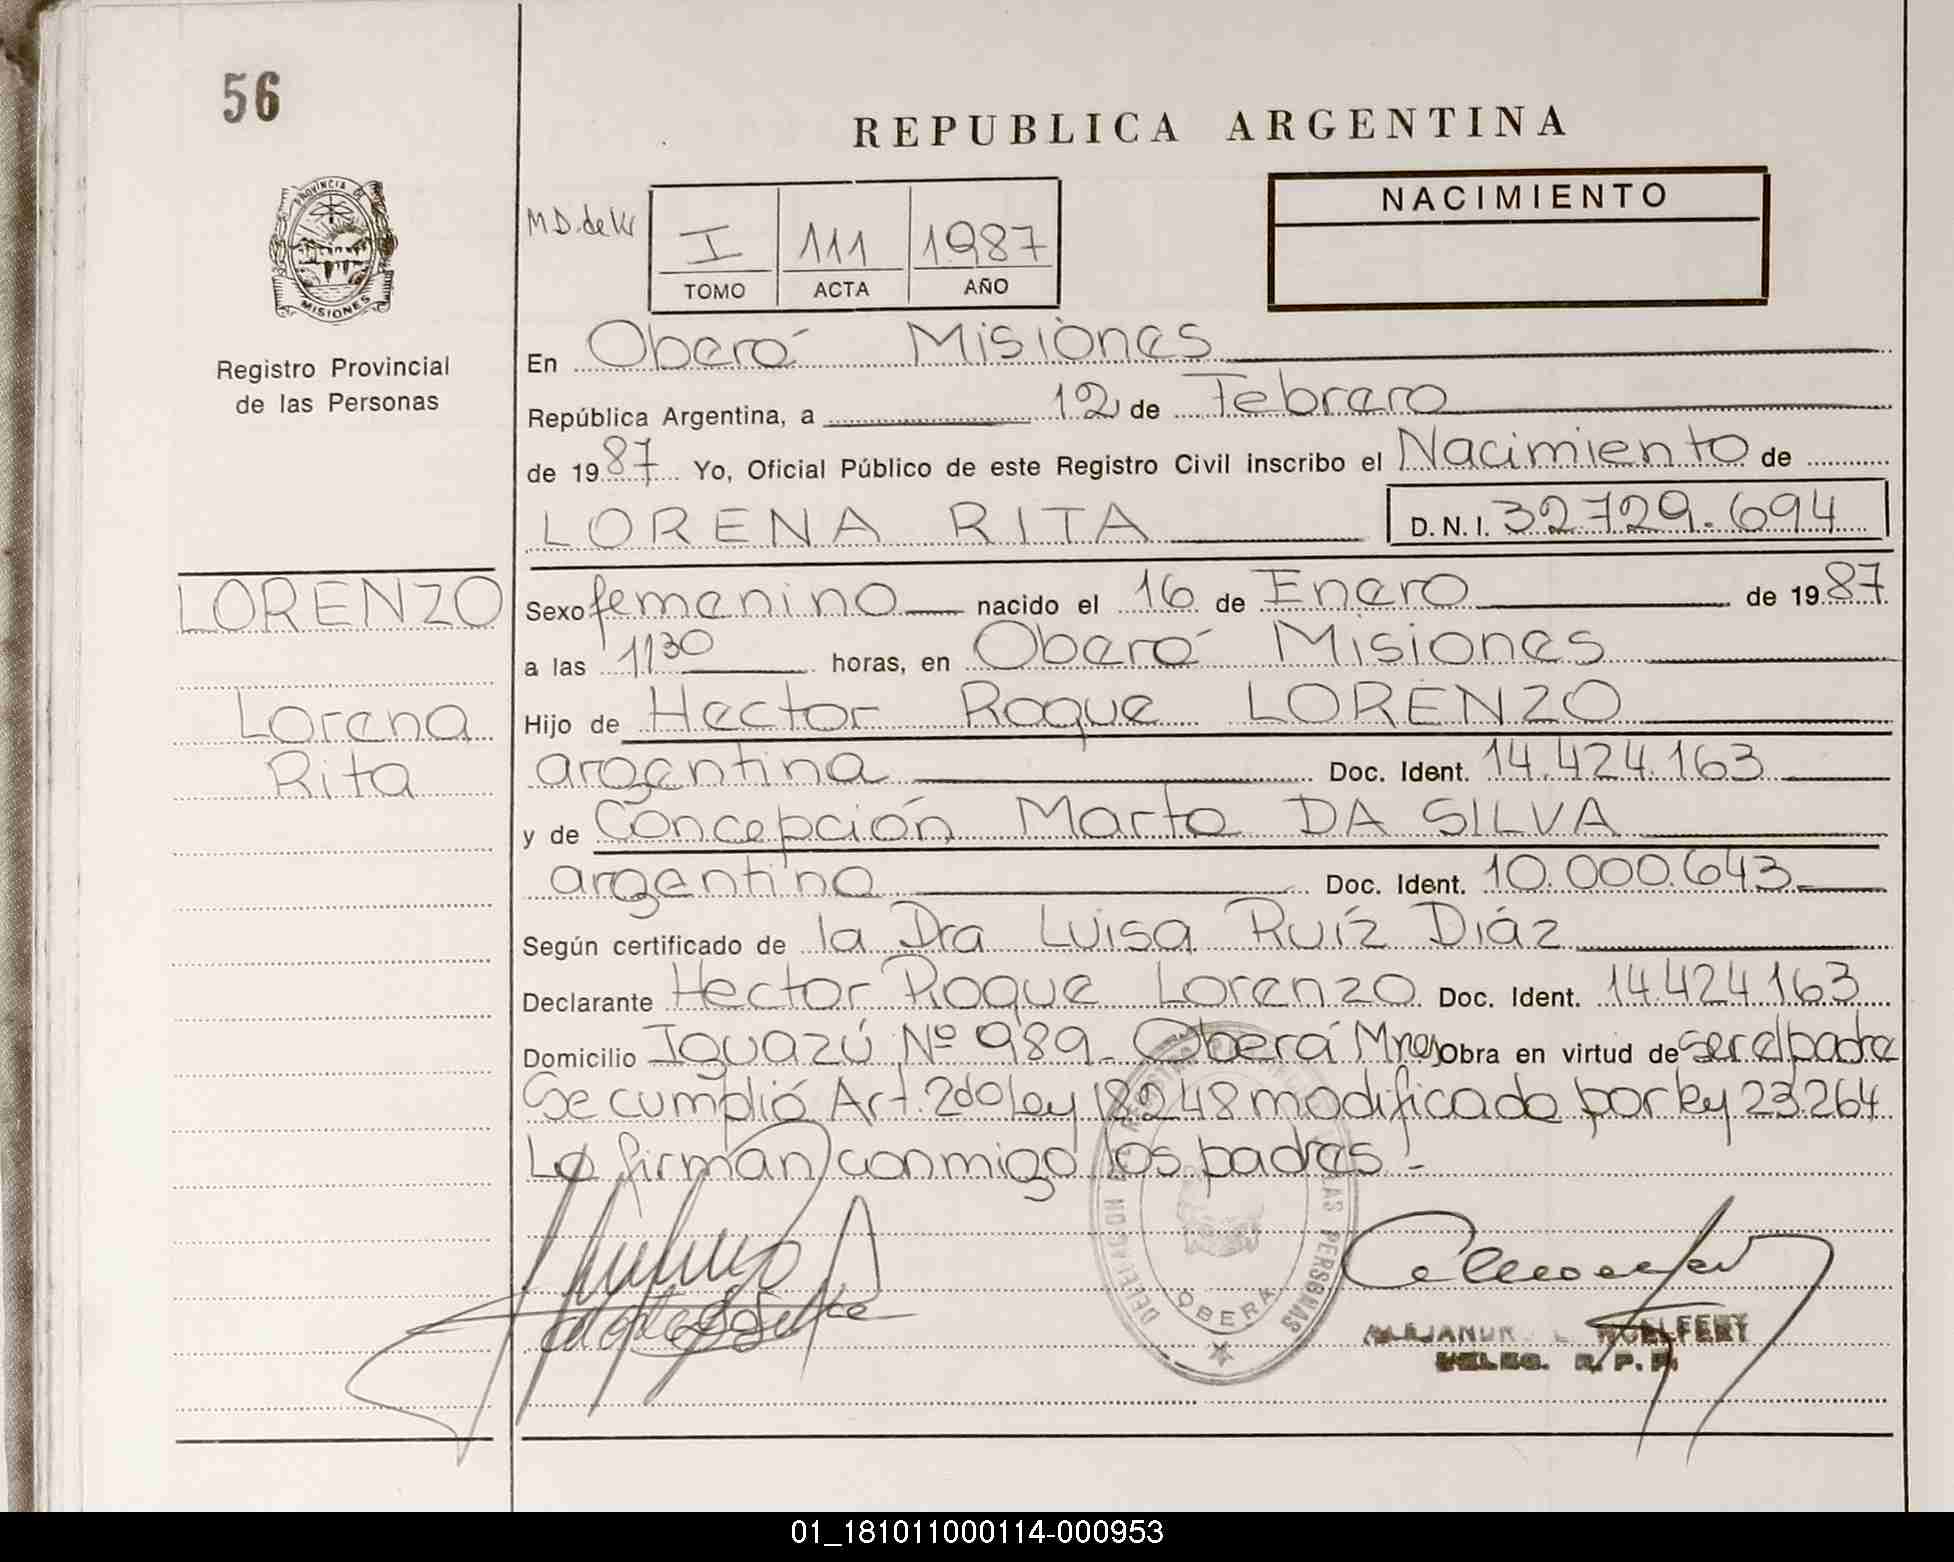 56
REPUBLICA ARGENTINA
PROVINCIA DE
MISIONES
Registro Provincial
de las Personas
LORENZO
Lorena
Rita
I 111 1987
TOMO ACTA AÑO
NACIMIENTO
En Oberá Misiones
República Argentina, a 12 de Febrero
de 1987 Yo, Oficial Público de este Registro Civil inscribo el Nacimiento de
LORENA RITA D.N.I. 32.729.694
Sexo femenino nacido el 16 de Enero de 1987
a las 1130 horas, en Oberá Misiones
Hijo de Hector Roque LORENZO
argentina Doc. Ident. 14.424.163
y de Concepción Marta DA SILVA
argentina Doc. Ident. 10.000.643
Según certificado de la Dra Luisa Ruíz Diáz
Declarante Hector Roque Lorenzo Doc. Ident. 14.424.163
Domicilio Iguazú Nº 989 - Oberá Mnes Obra en virtud de ser el padre
Se cumplió Art. 2do ley 18248 modificado por ley 23.264
La firman conmigo los padres.-
DELEGACION PERSONAS
OBERA
DELEG. R. P. P.
01_181011000114-000953